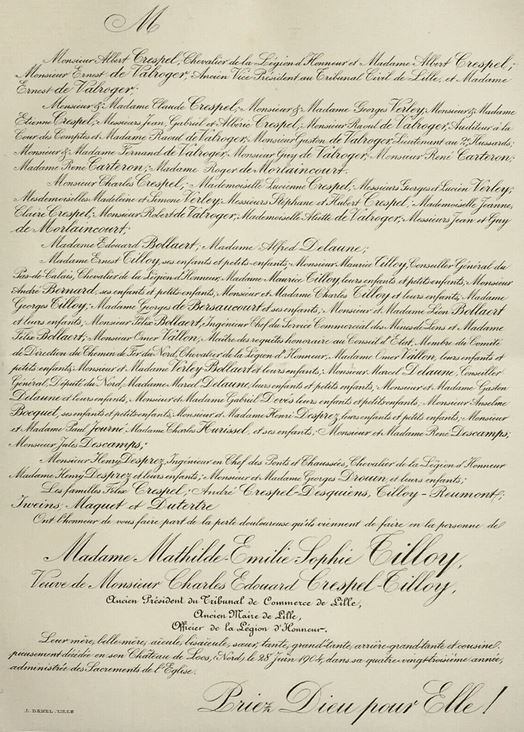 M
Monsieur Albert Crespel, Chevalier de la Légion d'Honneur et Madame Albert Crespel;
Monsieur Ernest de Valroger, Ancien Vice-Président au Tribunal Civil de Lille, et Madame
Ernest de Valroger;
Monsieur & Madame Claude Crespel, Monsieur & Madame Georges Verley, Monsieur & Madame
Etienne Crespel, Messieurs Jean, Gabriel et Albéric Crespel, Monsieur Raoul de Valroger, Auditeur à la
Cour des Comptes et Madame Raoul de Valroger, Monsieur Gaston de Valroger, Lieutenant au Hussards;
Monsieur & Madame Fernand de Valroger, Monsieur Guy de Valroger, Monsieur René Carteron;
Madame René Carteron; Madame Roger de Morlaincourt;
Monsieur Charles Crespel, Mademoiselle Lucienne Crespel, Messieurs Georges et Lucien Verley;
Mesdemoiselles Madeleine et Simone Verley; Messieurs Stéphane et Hubert Crespel, Mademoiselle Jeanne,
Claire Crespel; Monsieur Robert de Valroger, Mademoiselle Aliette de Valroger; Messieurs Jean et Guy
de Morlaincourt;
Madame Edouard Bollaert; Madame Alfred Delaune;
Madame Ernest Tilloy, ses enfants et petits-enfants; Monsieur Maurice Tilloy, Conseiller Général du
Pas-de-Calais, Chevalier de la Légion d'Honneur, Madame Maurice Tilloy, leurs enfants et petits-enfants; Monsieur
André Bernard, ses enfants et petits-enfants, Monsieur et Madame Charles Tilloy et leurs enfants, Madame
Georges Tilloy; Madame Georges de Bersaucourt et ses enfants, Monsieur et Madame Léon Bollaert
et leurs enfants, Monsieur Félix Bollaert, Ingénieur Chef du Service Commercial des Mines de Lens et Madame
Félix Bollaert; Monsieur Omer Vallon, Maître des requêtes honoraire au Conseil d'Etat Membre du Comité
de Direction du Chemin de Fer du Nord, Chevalier de la Légion d'Honneur, Madame Omer Vallon, leurs enfants et
petits enfants, Monsieur et Madame Verley-Bollaert et leurs enfants, Monsieur Marcel Delaune, Conseiller
Général, Député du Nord, Madame Marcel Delaune, leurs enfants et petits enfants, Monsieur et Madame Gaston
Delaune et leurs enfants, Monsieur et Madame Gabriel Devès leurs enfants et petits enfants, Monsieur Anselme
Bocquet, ses enfants et petits enfants, Monsieur et Madame Henri Desprez, leurs enfants et petits enfants, Monsieur
et Madame Paul Journé, Madame Charles Hurissel, et ses enfants, Monsieur et Madame René Descamps,
Monsieur Jules Descamps;
Monsieur Henry Desprez, Ingénieur en Chef des Ponts et Chaussées, Chevalier de la Légion d'Honneur
Madame Henry Desprez et leurs enfants; Monsieur et Madame Georges Drouin et leurs enfants;
Les familles Félix Crespel, André Crespel-Desquiens, Tilloy-Reumont,
Iweins, Maquet et Dutertre
Ont l'honneur de vous faire part de la perte douloureuse qu'ils viennent de faire en la personne de
Madame Mathilde-Emilie-Sophie Tilloy,
Veuve de Monsieur Charles Edouard Crespel-Tilloy,
Ancien Président du Tribunal de Commerce de Lille,
Ancien Maire de Lille,
Officier de la Légion d'Honneur,
Leur mère, belle-mère, aïeule, bisaïeule, sœur, tante, grand-tante, arrière-grand-tante et cousine,
pieusement décédée en son Château de Loos, (Nord), le 28 Juin 1904, dans sa quatre-vingt-troisième année,
administrée des Sacrements de l'Eglise.
Priez Dieu pour Elle!
L. DANEL, LILLE